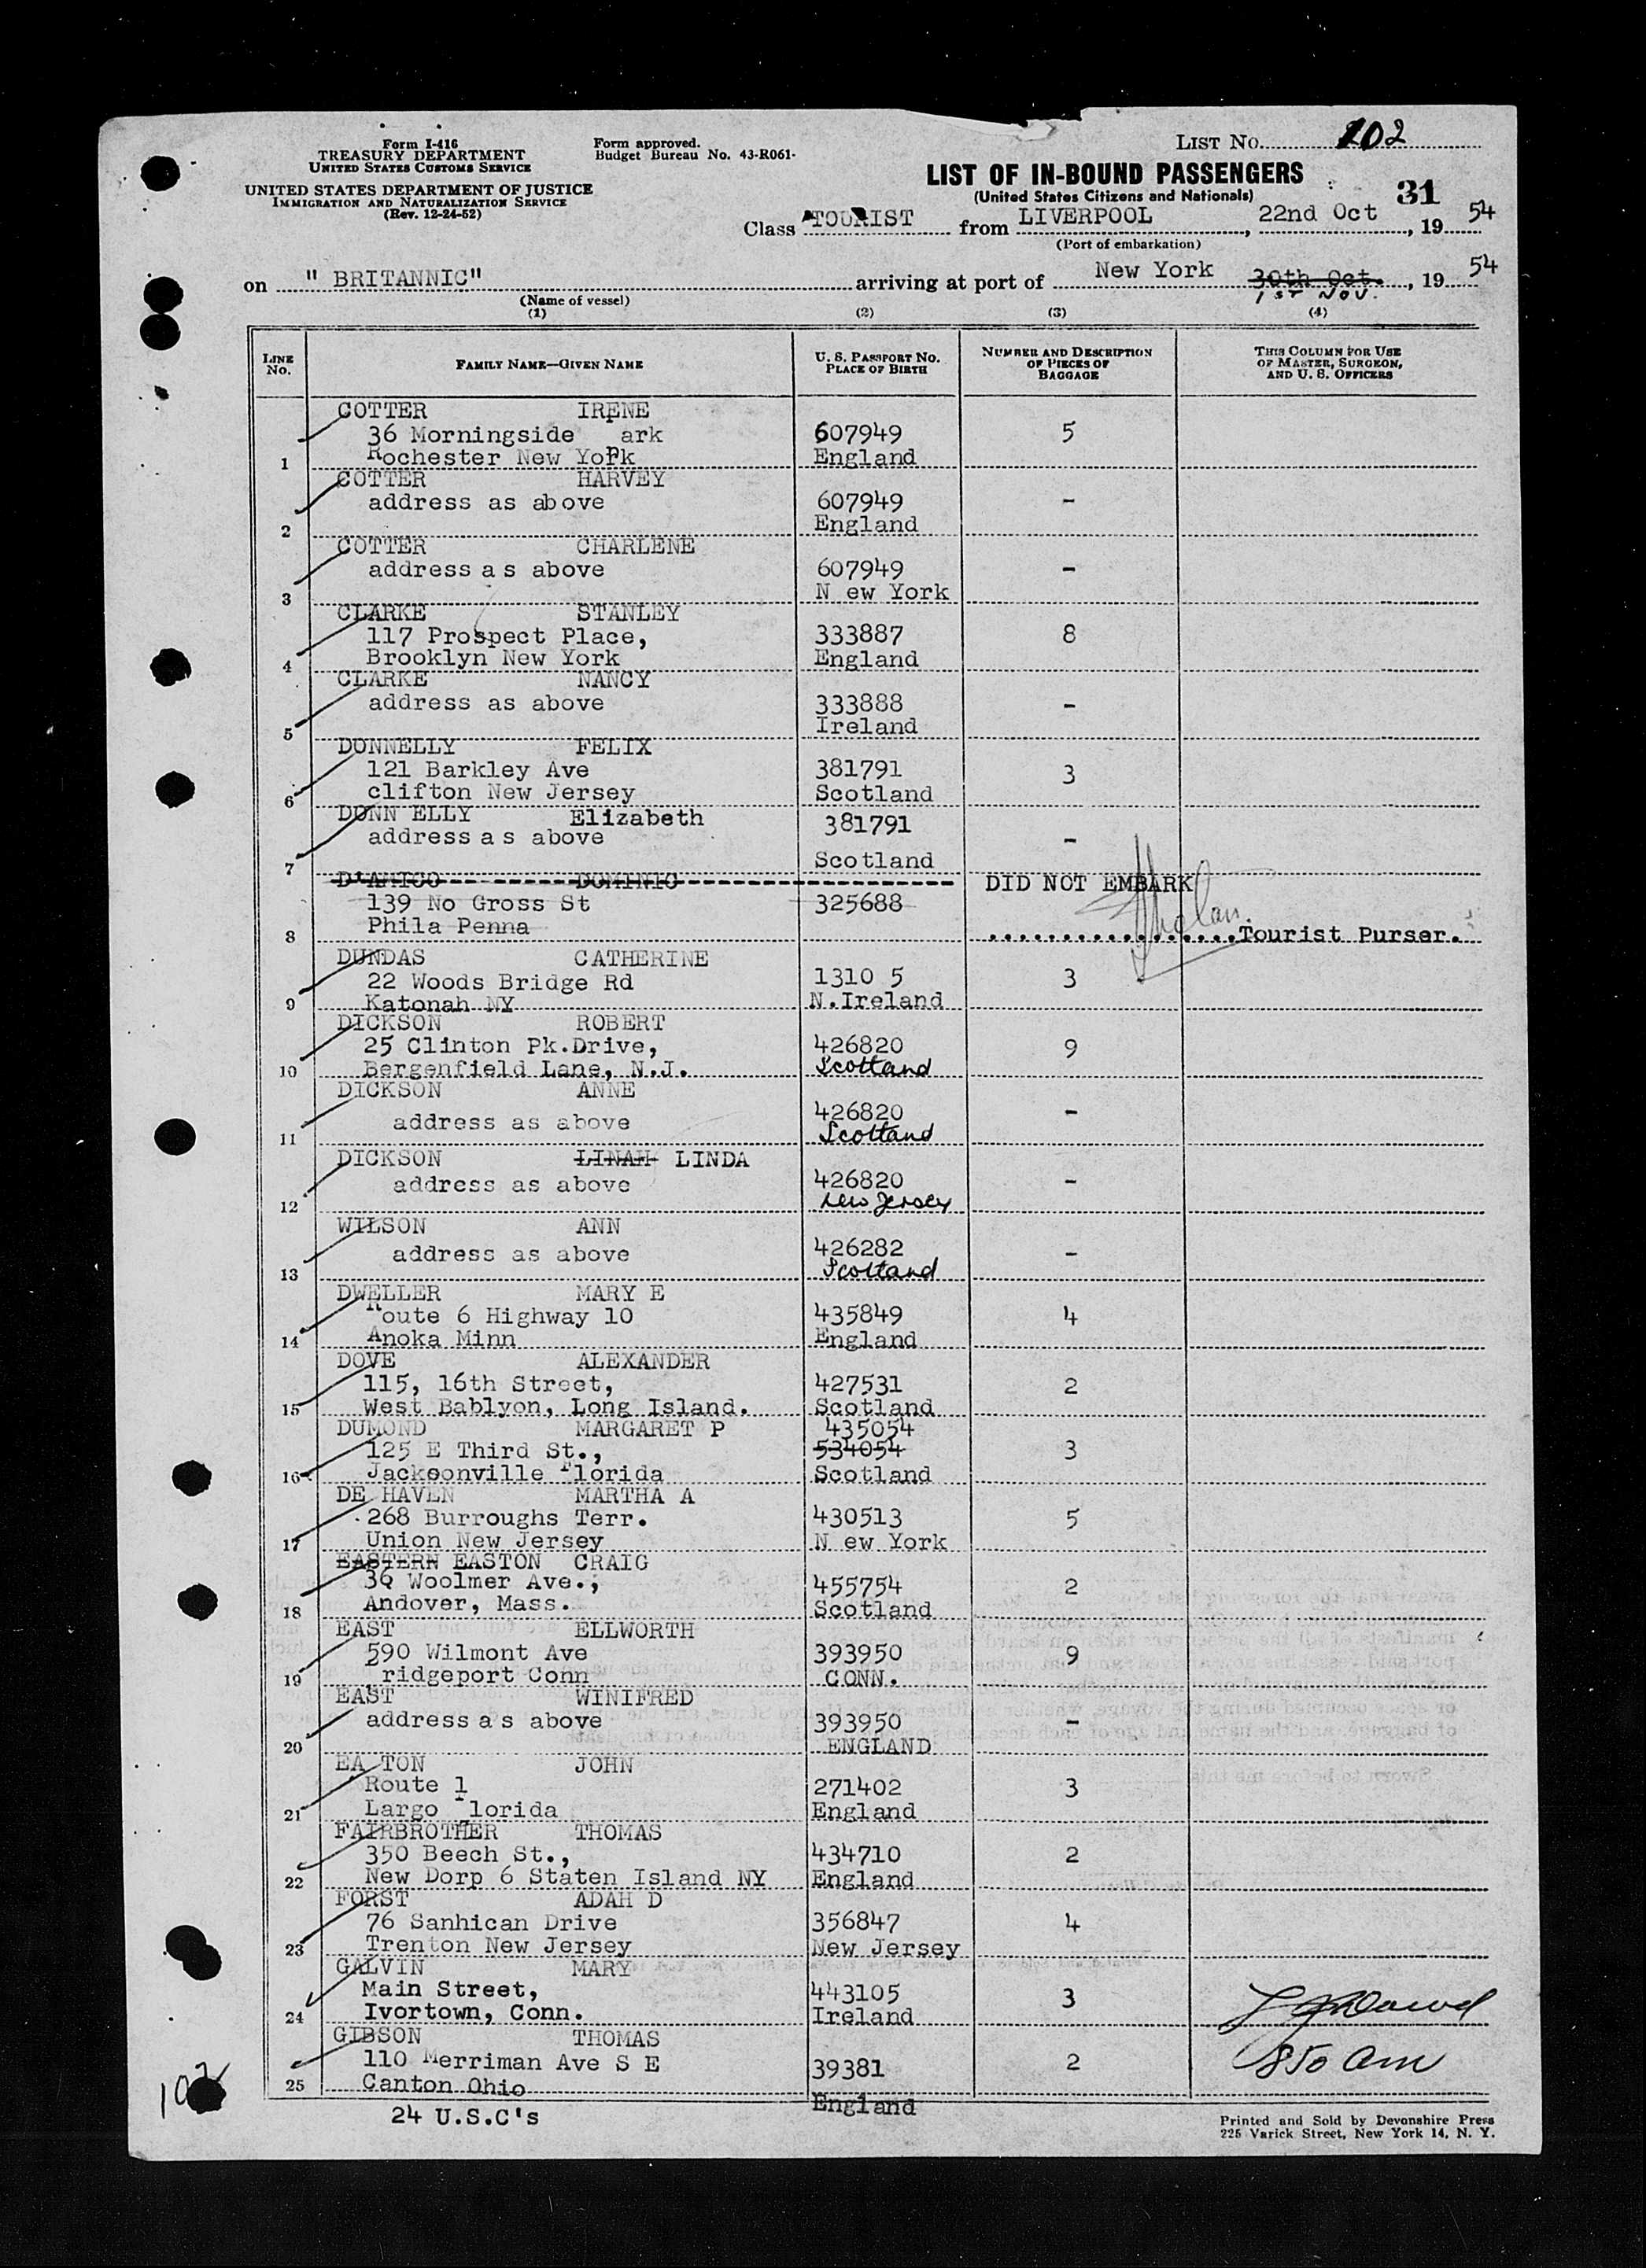 Form I-416
TREASURY DEPARTMENT
UNITED STATES CUSTOMS SERVICE
UNITED STATES DEPARTMENT OF JUSTICE
IMMIGRATION AND NATURALIZATION SERVICE
(Rev. 12-24-52)
Form approved.
Budget Bureau No. 43-R061-
LIST No. 102
LIST OF IN-BOUND PASSENGERS
(United States Citizens and Nationals)
31
Class TOURIST from LIVERPOOL, 22nd Oct, 1954
(Port of embarkation)
on "BRITANNIC" arriving at port of New York 30th Oct., 1954
1ST NOV.
(Name of vessel)
(1) (2) (3) (4)
LINE No. FAMILY NAME—GIVEN NAME U. S. PASSPORT NO. PLACE OF BIRTH NUMBER AND DESCRIPTION OF PIECES OF BAGGAGE THIS COLUMN FOR USE OF MASTER, SURGEON, AND U. S. OFFICERS
COTTER IRENE
36 Morningside Park 607949 5
1 Rochester New York England
COTTER HARVEY
address as above 607949 -
2 England
COTTER CHARLENE
address as above 607949 -
3 N ew York
CLARKE STANLEY
117 Prospect Place, 333887 8
4 Brooklyn New York England
CLARKE NANCY
address as above 333888 -
5 Ireland
DONNELLY FELIX
121 Barkley Ave 381791 3
6 clifton New Jersey Scotland
DONN ELLY Elizabeth 381791
address as above -
7 Scotland
D'AMICO DOMINIC DID NOT EMBARK
139 No Gross St 325688
8 Phila Penna Tourist Purser.
DUNDAS CATHERINE
22 Woods Bridge Rd 1310 5 3
9 Katonah NY N.Ireland
DICKSON ROBERT
25 Clinton Pk.Drive, 426820 9
10 Bergenfield Lane, N.J. Scotland
DICKSON ANNE
address as above 426820 -
11 Scotland
DICKSON LINAH LINDA
address as above 426820 -
12 New Jersey
WILSON ANN
address as above 426282 -
13 Scotland
DWELLER MARY E
Route 6 Highway 10 435849 4
14 Anoka Minn England
DOVE ALEXANDER
115, 16th Street, 427531 2
15 West Bablyon, Long Island. Scotland
DUMOND MARGARET P 435054
125 E Third St., 534054 3
16 Jacksonville Florida Scotland
DE HAVEN MARTHA A
268 Burroughs Terr. 430513 5
17 Union New Jersey N ew York
EASTERN EASTON CRAIG
36 Woolmer Ave., 455754 2
18 Andover, Mass. Scotland
EAST ELLWORTH
590 Wilmont Ave 393950 9
19 ridgeport Conn CONN.
EAST WINIFRED
address as above 393950 -
20 ENGLAND
EA TON JOHN
Route 1 271402 3
21 Largo Florida England
FAIRBROTHER THOMAS
350 Beech St., 434710 2
22 New Dorp 6 Staten Island NY England
FORST ADAH D
76 Sanhican Drive 356847 4
23 Trenton New Jersey New Jersey
GALVIN MARY
Main Street, 443105 3
24 Ivortown, Conn. Ireland
GIBSON THOMAS
110 Merriman Ave S E 39381 2 850 am
25 Canton Ohio
England
102
24 U.S.C's
Printed and Sold by Devonshire Press
225 Varick Street, New York 14, N. Y.